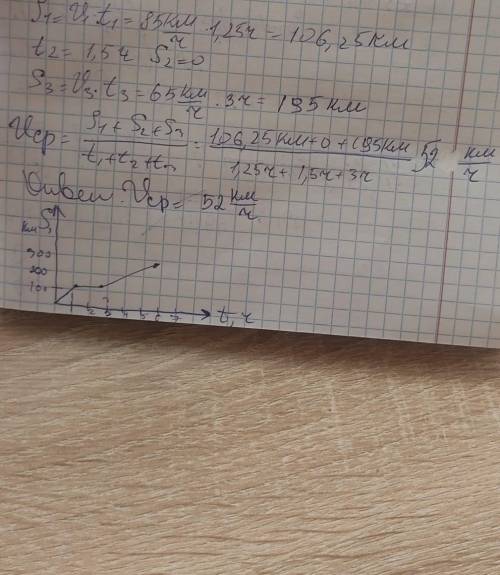 S₁ = V₁ t₁ = 85 км/ч · 1,25ч = 106,25 км
t₂ = 1,5 ч S₂ = 0
S₃ = V₃ · t₃ = 65 км/ч · 3ч = 195 км
Vср = (S₁ + S₂ + S₃)/(t₁ + t₂ + t₃) = (106,25 км + 0 + 195 км)/(1,25ч + 1,5ч + 3ч) 52 км/ч
Ответ: Vср = 52 км/ч
S,
км
300
200
100
1 2 3 4 5 6 7 t, ч